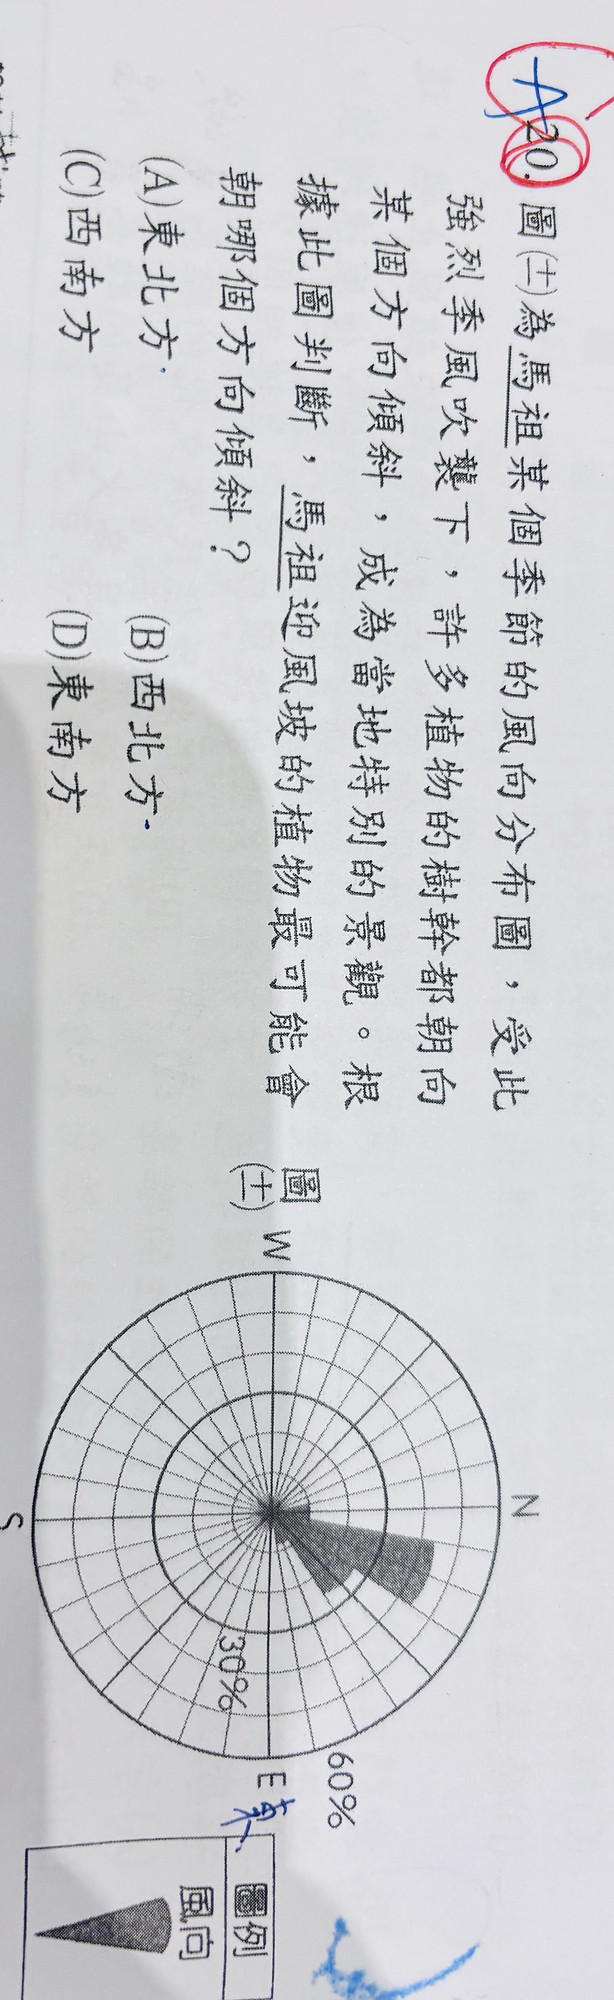 A 20. 圖(十一)為馬祖某個季節的風向分布圖，受此
強烈季風吹襲下，許多植物的樹幹都朝向
某個方向傾斜，成為當地特別的景觀。根
據此圖判斷，馬祖迎風坡的植物最可能會
朝哪個方向傾斜？
(A)東北方
(B)西北方
(C)西南方
(D)東南方
圖(十一)
N
W
E
S
30%
60%
東
圖例
風向